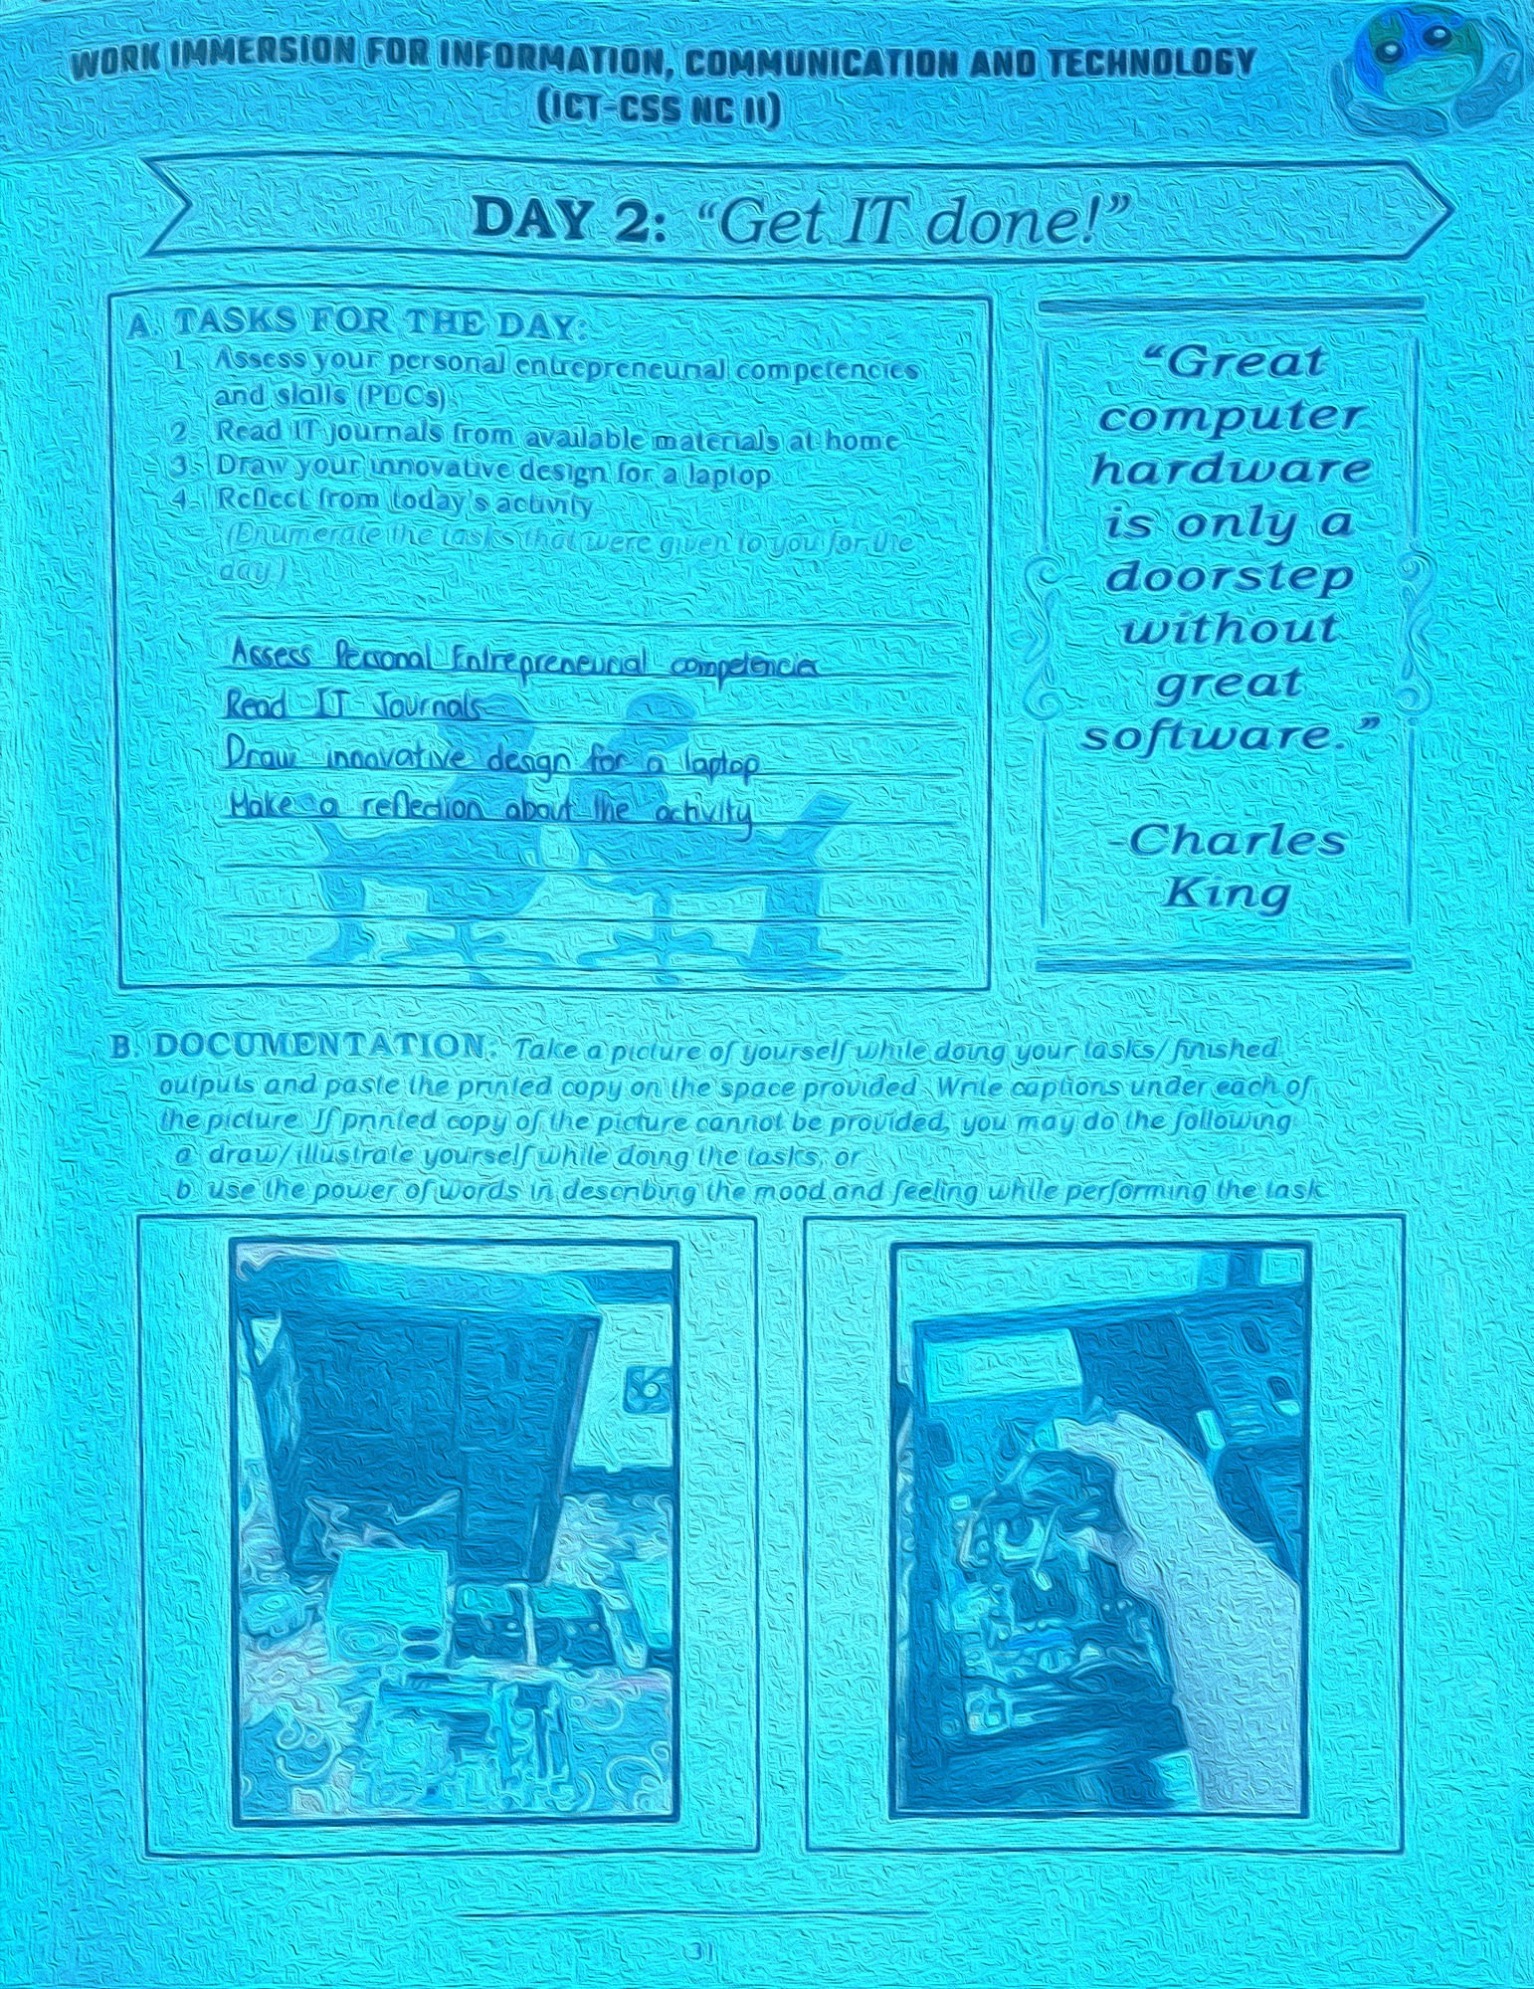 WORK IMMERSION FOR INFORMATION, COMMUNICATION AND TECHNOLOGY
(ICT-CSS NC II)
DAY 2: “Get IT done!”
A. TASKS FOR THE DAY:
1. Assess your personal entrepreneurial competencies
and skills (PECs).
2. Read IT journals from available materials at home
3. Draw your innovative design for a laptop
4. Reflect from today's activity
(Enumerate the tasks that were given to you for the
day.)
Assess Personal Entrepreneurial competencies
Read IT Journals
Draw innovative design for a laptop
Make a reflection about the activity
“Great
computer
hardware
is only a
doorstep
without
great
software.”
-Charles
King
B. DOCUMENTATION: Take a picture of yourself while doing your tasks/finished
outputs and paste the printed copy on the space provided. Write captions under each of
the picture. If printed copy of the picture cannot be provided, you may do the following:
a. draw/illustrate yourself while doing the tasks, or
b. use the power of words in describing the mood and feeling while performing the task
31